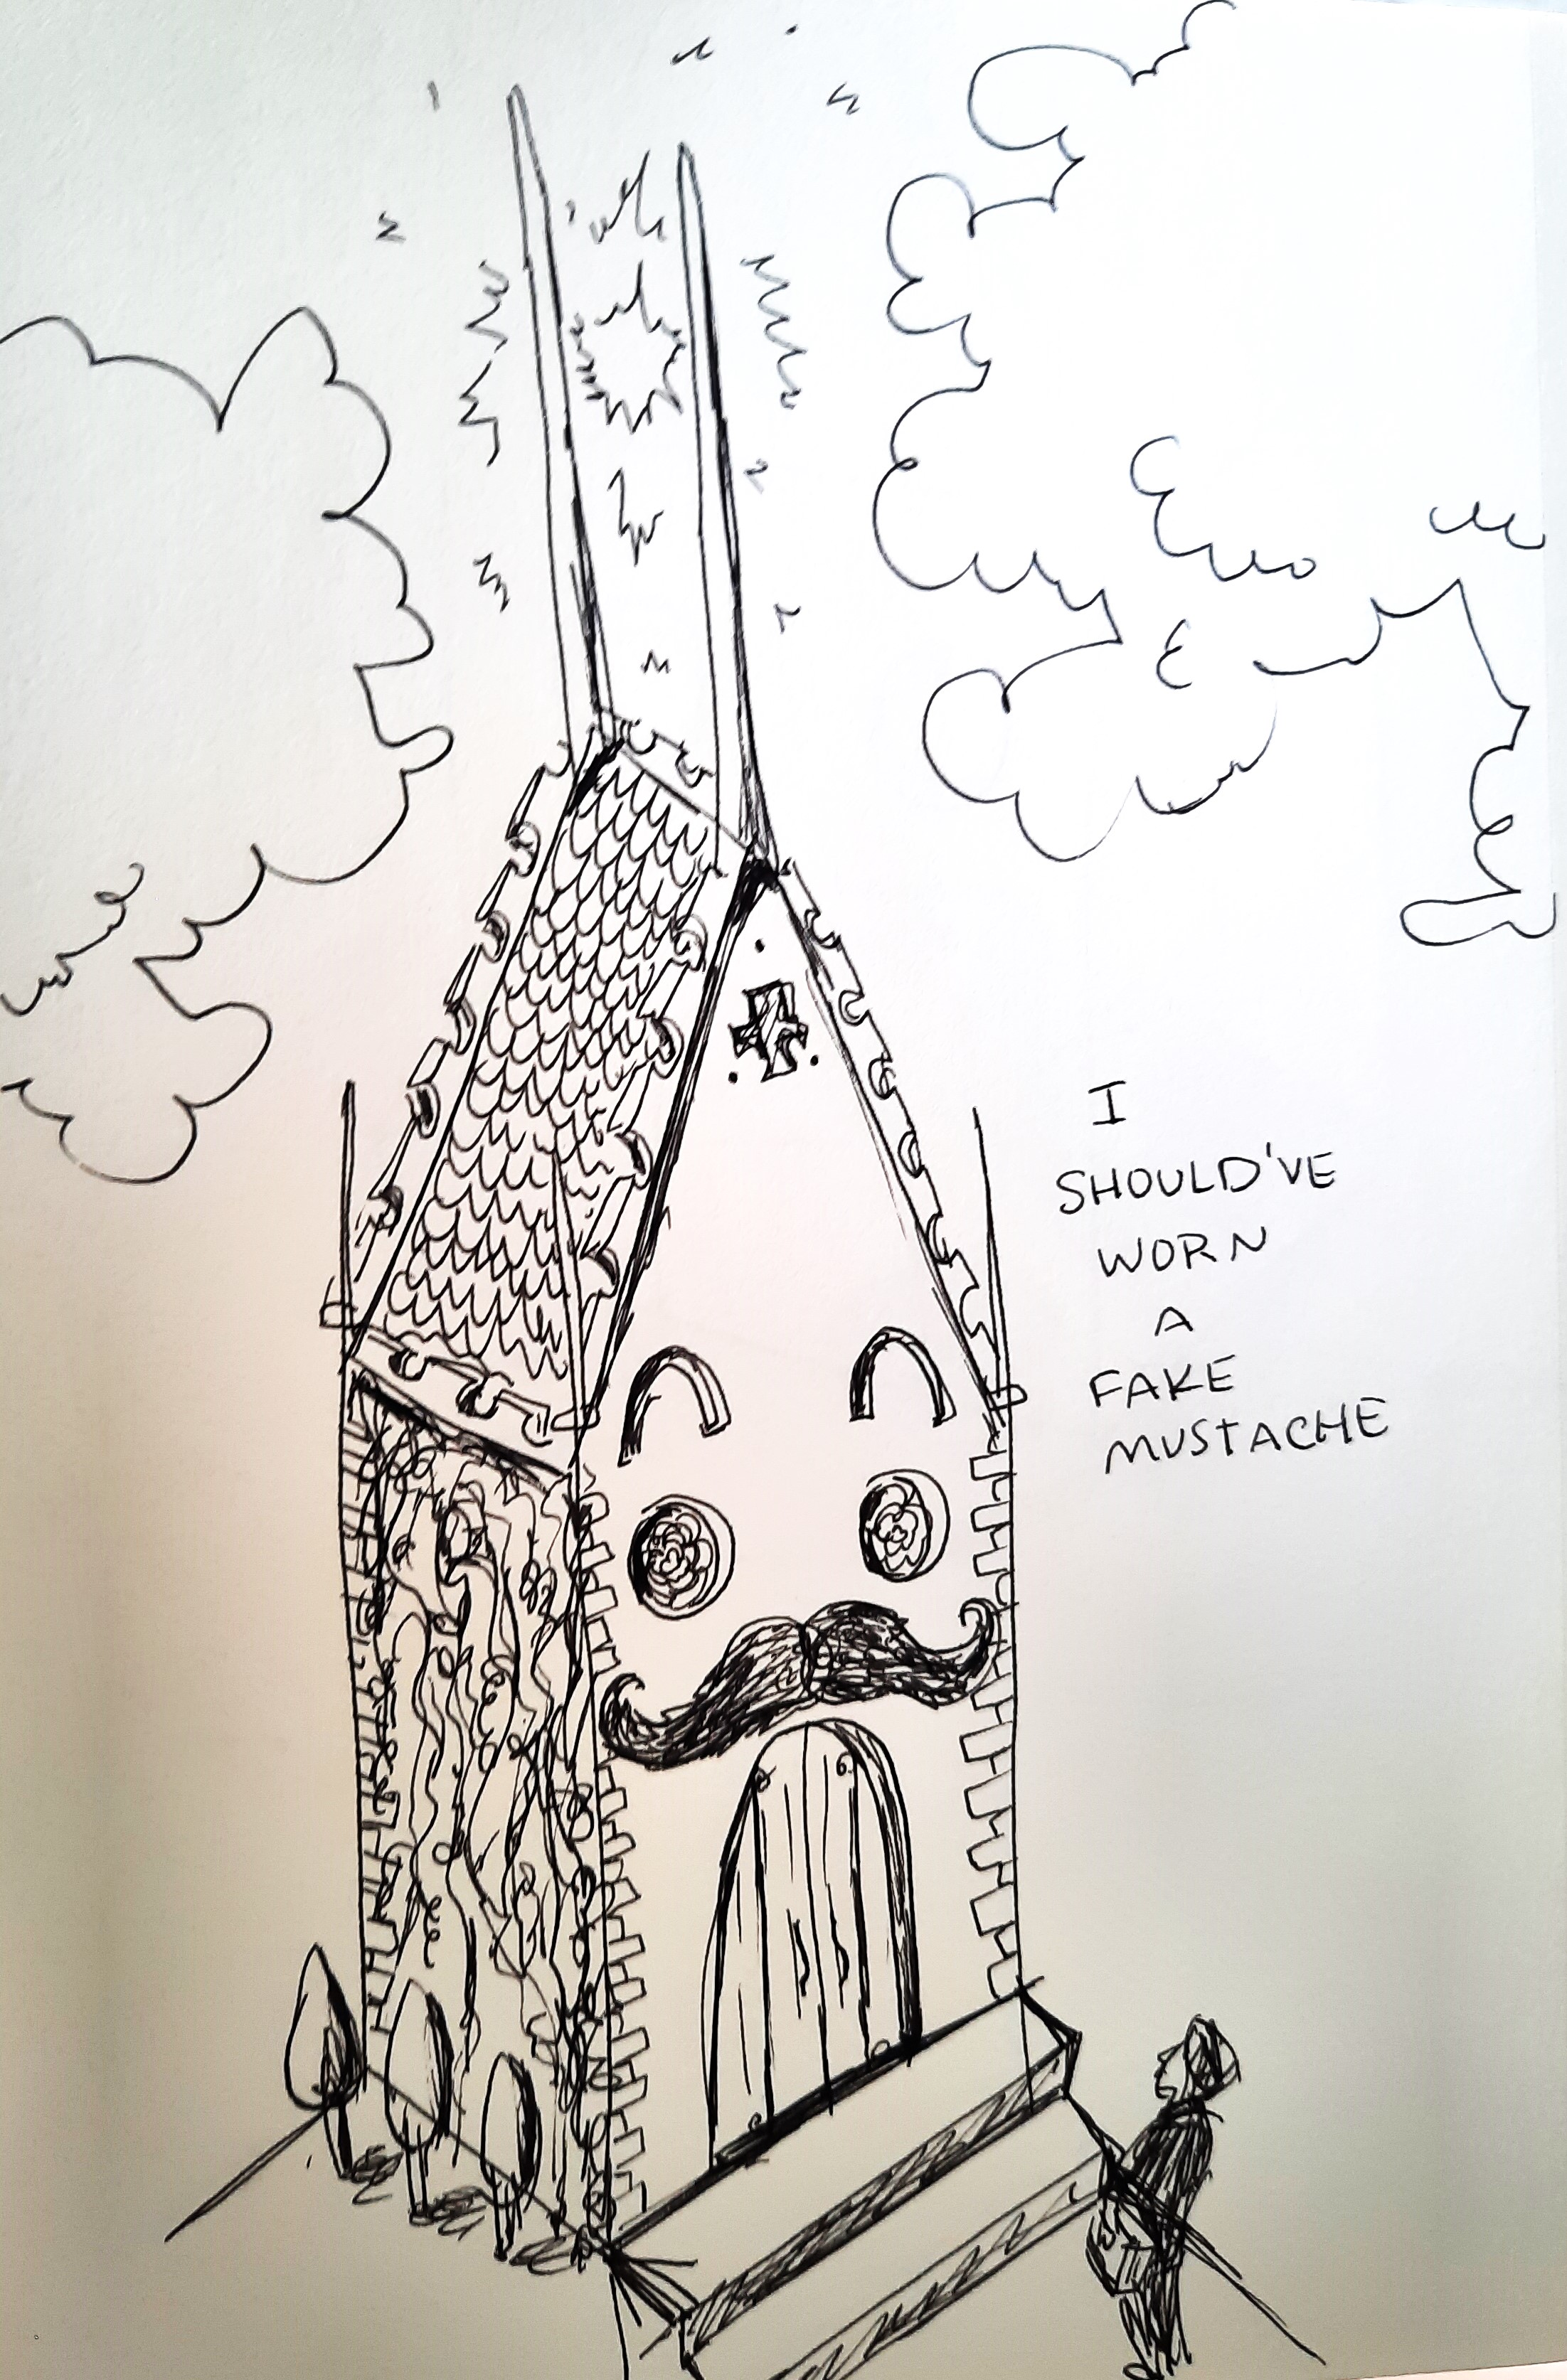 I
SHOULD'VE
WORN
A
FAKE
MUSTACHE